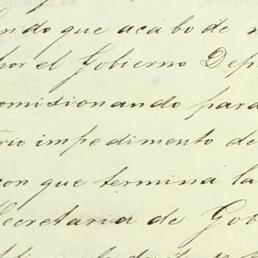 ndo que acabo de
por el Gobierno Dep
omisionando para
rio impedimento de
con que termina la
Secretaria de Gob